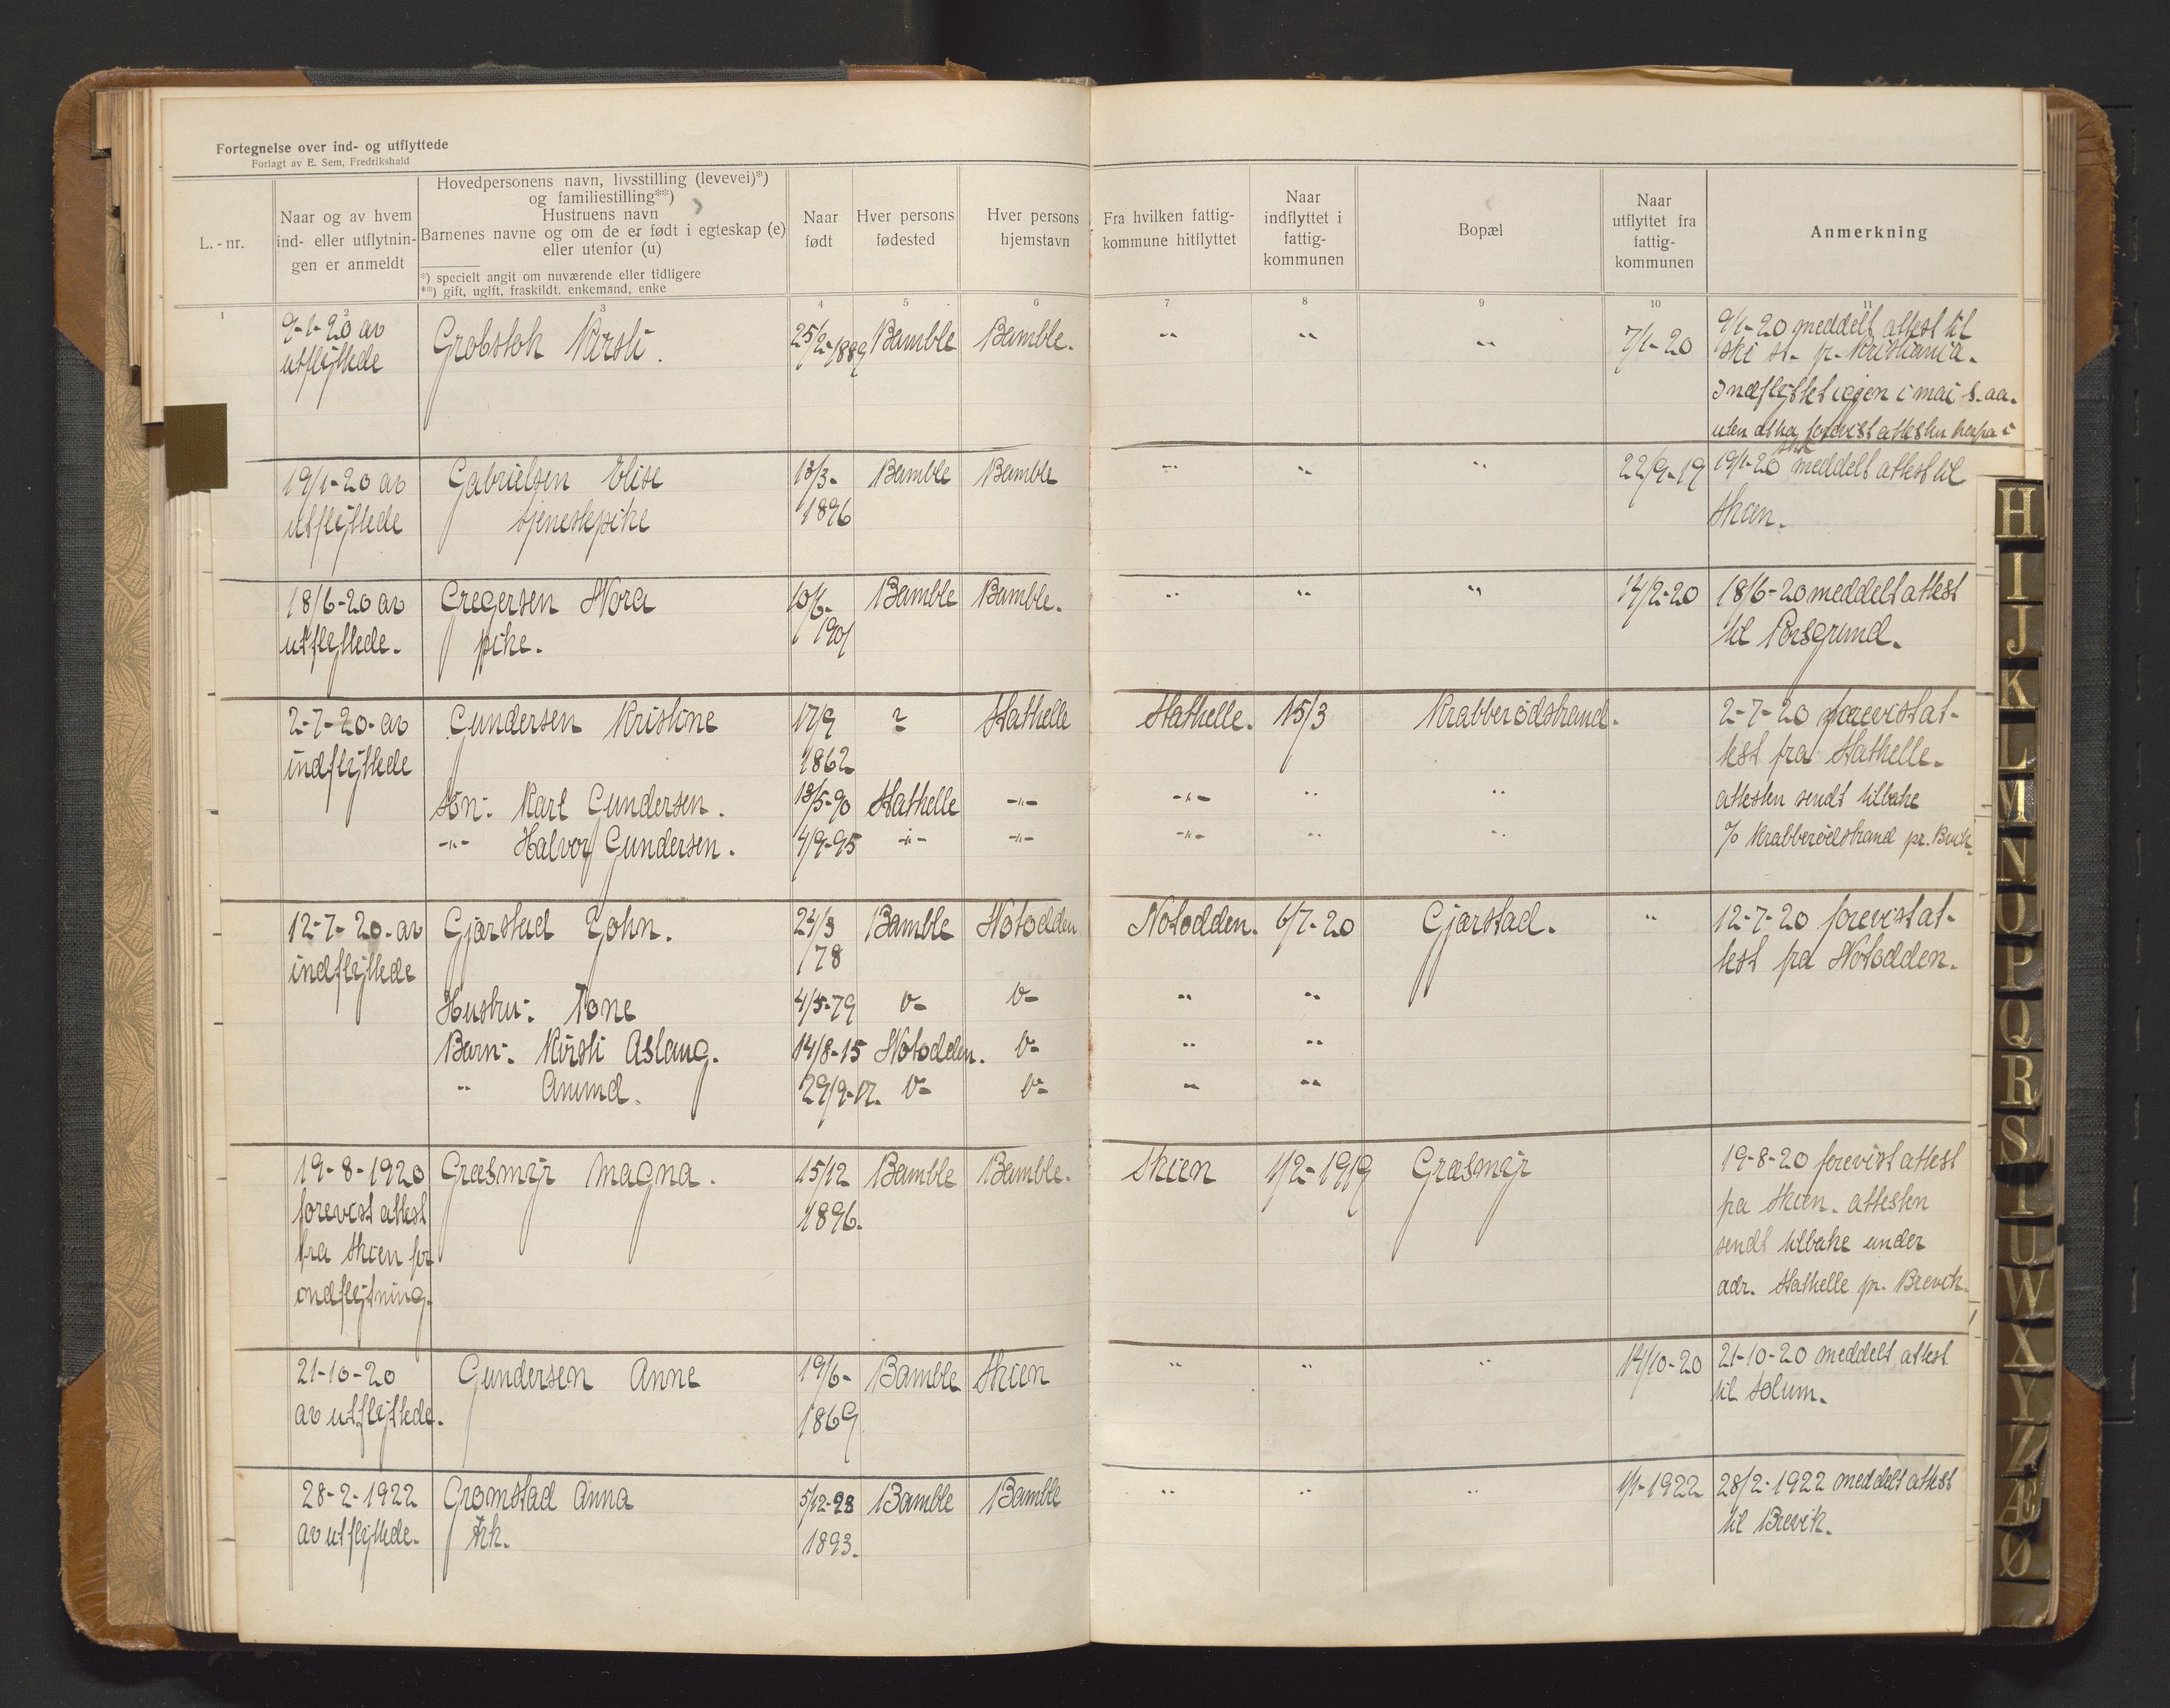 Fortegnelse over ind- og utflyttede
Forlagt av E. Sem, Fredrikshald
L.-nr.
Naar og av hvem
ind- eller utflytnin-
gen er anmeldt
Hovedpersonens navn, livsstilling (levevei)*)
og familiestilling**)
Hustruens navn
Barnenes navne og om de er født i egteskap (e)
eller utenfor (u)
*) specielt angit om nuværende eller tidligere
**) gift, ugift, fraskildt. enkemand, enke
Naar
født
Hver persons
fødested
Hver persons
hjemstavn
Fra hvilken fattig-
kommune hitflyttet
Naar
indflyttet i
fattig-
kommunen
Bopæl
Naar
utflyttet fra
fattig-
kommunen
Anmerkning
1 2 3 4 5 6 7 8 9 10 11
9-1-20 av Grobstok Kirsti. 25/2-1889 Bamble Bamble. " " " 7/1-20 9/1-20 meddelt attest til
utflyttede Ski st. pr. Kristiania.
Indflyttet igjen i mai s. aa.
uten at ha forevist attesten herfra
19/1-20 av Gabrielsen Elise 13/3- Bamble Bamble " " " 22/9-19 19/1-20 meddelt attest til
utflyttede tjenestepike 1896 Skien.
18/6-20 av Gregersen Nora 10/6- Bamble Bamble. " " " 14/2-20 18/6-20 meddelt attest
utflyttede. pike. 1901 til Porsgrund.
2-7-20. av Gundersen Kristine 17/9 ? Stathelle Stathelle. 15/3 Krabberødstrand. 2-7-20 forevist at-
indflyttede 1862 test fra Stathelle.
Søn: Karl Gundersen. 13/5-90 Stathelle -"- -"- " " attesten sendt tilbake
-"- Halvor Gundersen. 4/9-95 -"- -"- -"- " " % Krabberødstrand pr. Brevik.
12-7-20. av Gjørstad John. 24/3 Bamble Notodden Notodden. 6/7-20 Gjørstad. " 12-7-20 forevist at-
indflyttede 178 test fra Notodden.
Hustru: Tone 4/5-79 D- D- " "
Barn: Kirsti Aslaug. 14/8-15 Notodden. D- " "
" Anund. 29/9-17. D- D- " "
19-8-1920 Græsmyr Magna. 15/12 Bamble Bamble. Skien 1/2-1919 Græsmyr 19-8-20 forevist attest
forevist attest 1896. fra Skien. attesten
fra Skien for sendt tilbake under
indflytning. adr. Stathelle pr. Brevik.
21-10-20 Gundersen Anne 19/6- Bamble Skien " " " 14/10-20 21-10-20 meddelt attest
av utflyttede. 1869 til Solum.
28-2-1922 Gromstad Anna 5/12-93 Bamble Bamble " " " 1/1-1922 28/2-1922 meddelt attest
av utflyttede. frk. 1893. til Brevik.
H
I
J
K
L
M
N
O
P
Q
R
S
T
U
W
X
Y
Z
Æ
Ø